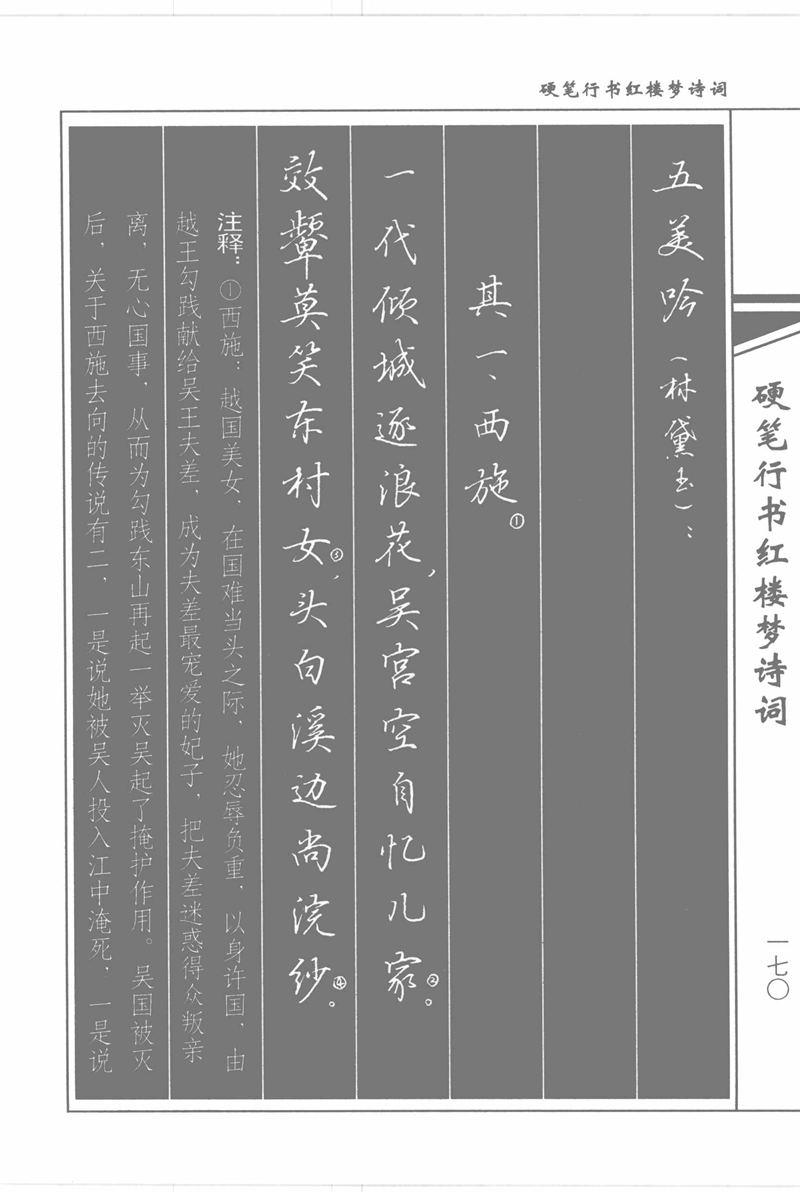 硬笔行书红楼梦诗词
五美吟（林黛玉）：
其一、西施①
一代倾城逐浪花，吴宫空自忆儿家②。
效颦莫笑东村女③，头白溪边尚浣纱④。
注释：①西施：越国美女，在国难当头之际，她忍辱负重，以身许国，由
越王勾践献给吴王夫差，成为夫差最宠爱的妃子，把夫差迷惑得众叛亲
离，无心国事，从而为勾践东山再起一举灭吴起了掩护作用。吴国被灭
后，关于西施去向的传说有二，一是说她被吴人投入江中淹死，一是说
硬笔行书红楼梦诗词
一七〇